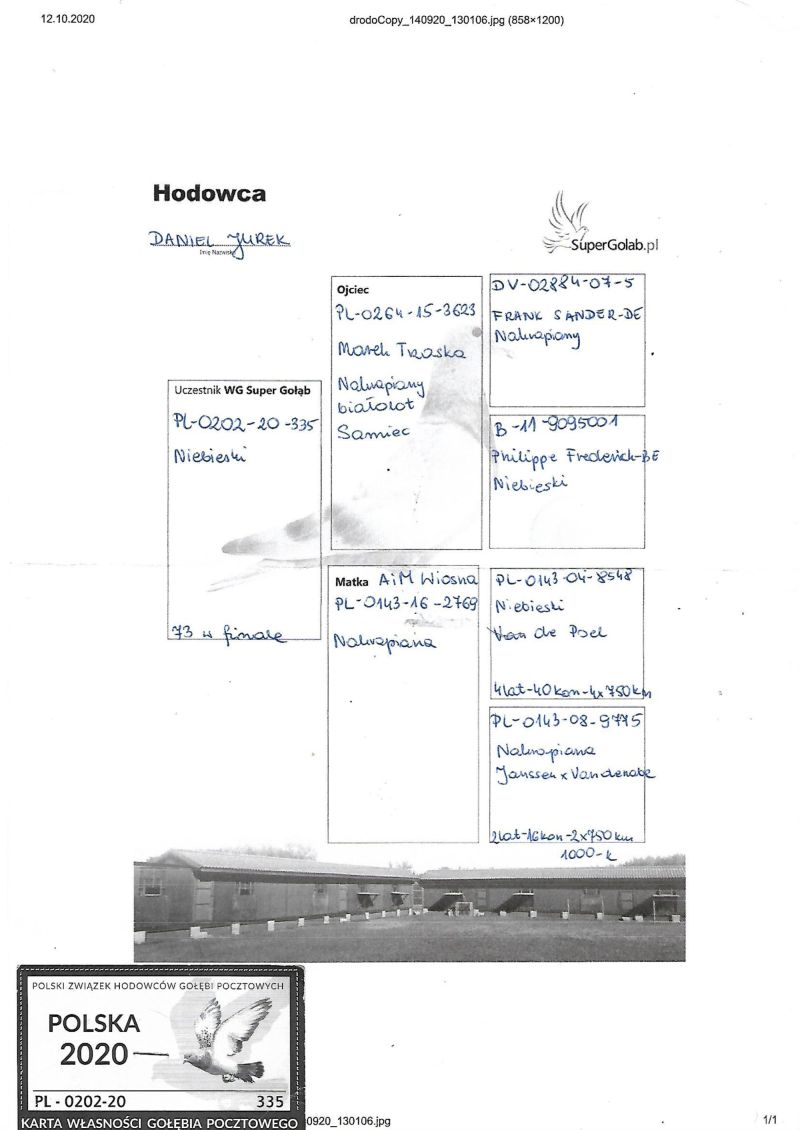 12.10.2020
drodoCopy_140920_130106.jpg (858×1200)
Hodowca
DANIEL JUREK
Imię Nazwisko
SuperGolab.pl
Uczestnik WG Super Gołąb
PL-0202-20-335
Niebieski
73 w finale
Ojciec
PL-0264-15-3623
Marek Traska
Nakrapiany
białolot
Samiec
DV-02884-07-5
FRANK SANDER-DE
Nakrapiany
B-11-9095001
Philippe Frederick-BE
Niebieski
Matka AiM Wiosna
PL-0143-16-2769
Nakrapiana
PL-0143-04-8548
Niebieski
Van de Poel
4lat-40kon-4x750km
PL-0143-08-9775
Nakrapiana
Janssen x Vandenabe
2lat-16kon-2x750km
1000-k
POLSKI ZWIĄZEK HODOWCÓW GOŁĘBI POCZTOWYCH
POLSKA
2020
PL - 0202-20 335
KARTA WŁASNOŚCI GOŁĘBIA POCZTOWEGO
0920_130106.jpg
1/1